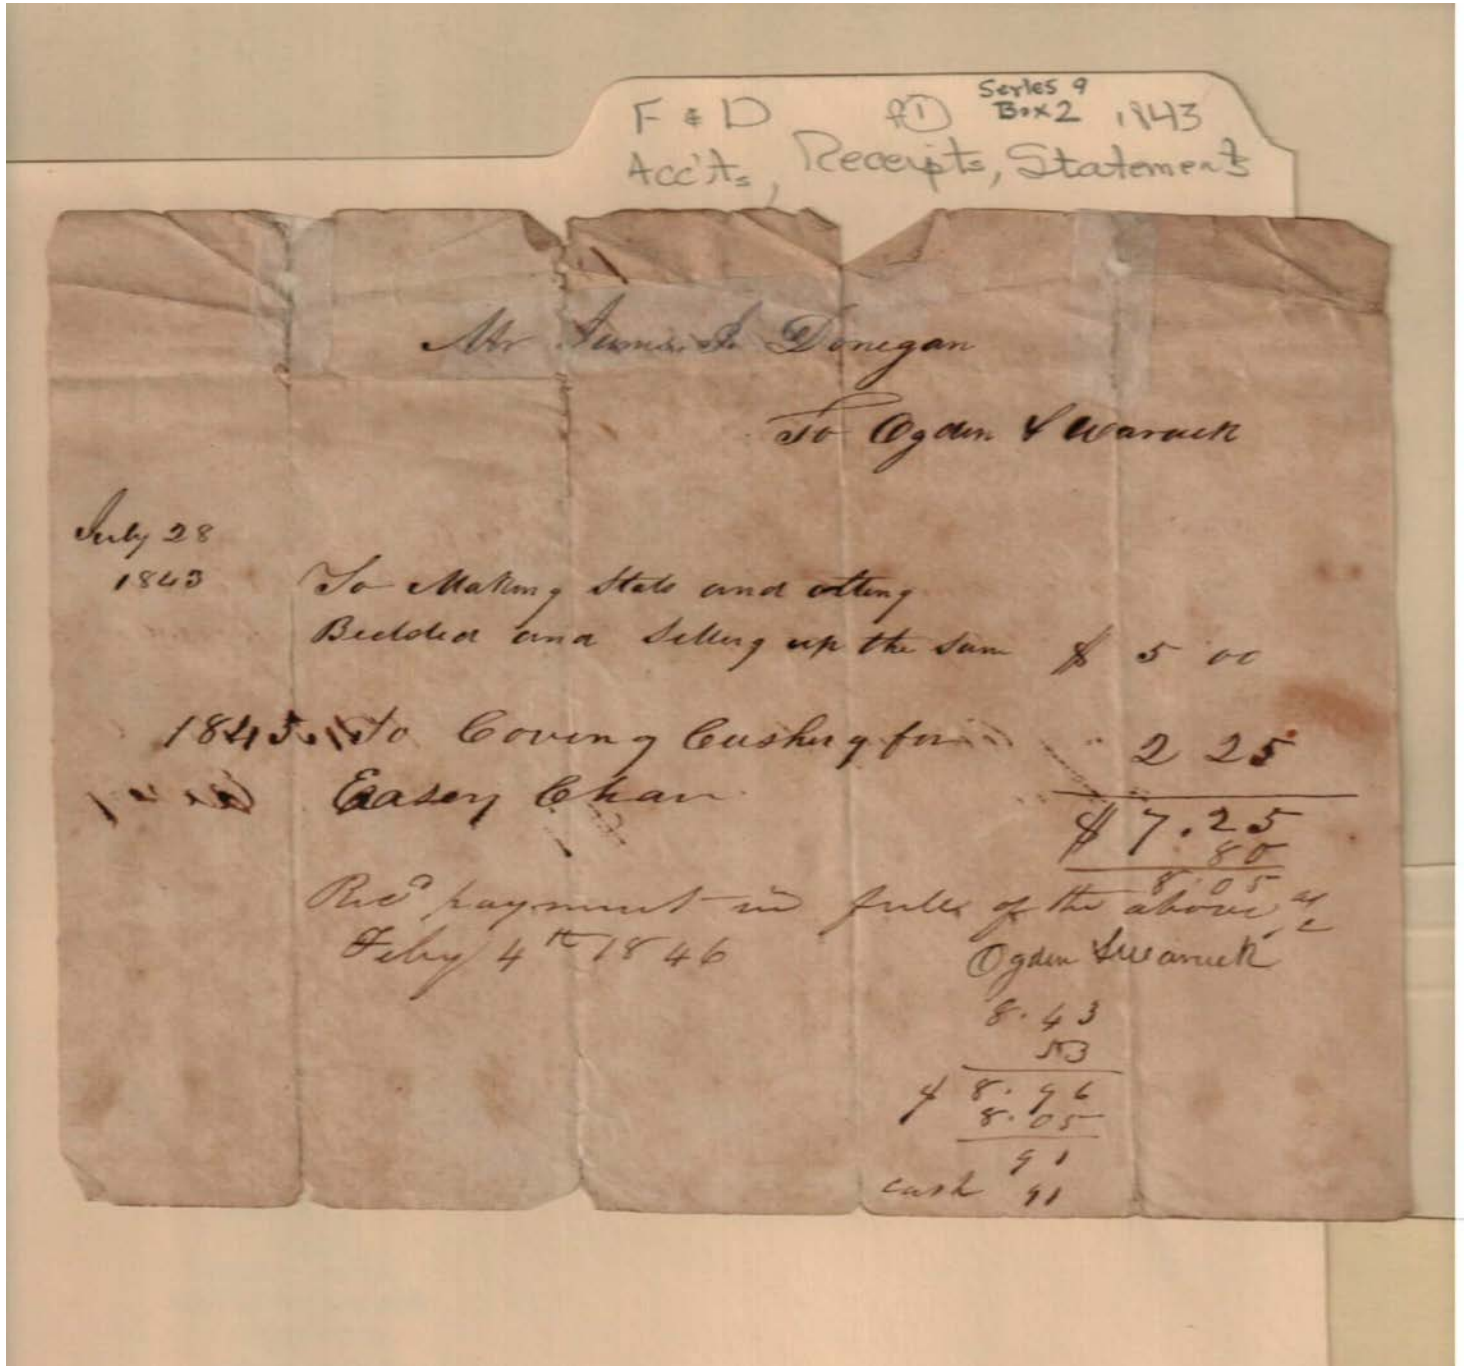 F & D
Series 9
Box 2
1843
Acc'ts, Receipts, Statements
Mr James J. Donegan
To Ogden & Waruck
July 28
1843
To Making Slats and
and Setting up the Same $ 5 00
1845 To Covring Cushing for 2 25
Easey Chair
$ 7.25
80
8.05
Recd payment in full of the above
Feby 4th 1846
Ogden & Waruck
8.43
53
$ 8.96
8.05
91
cash 91